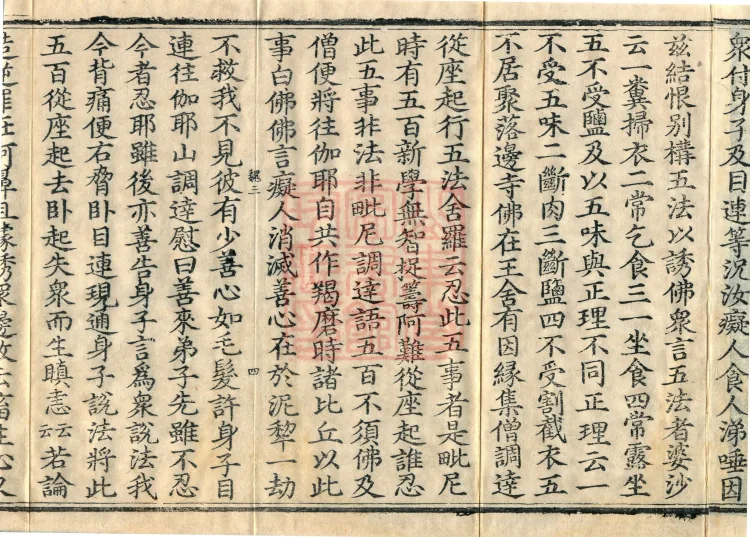 衆付身子及目連等況汝癡人食人涕唾因
玆結恨別構五法以誘佛衆言五法者婆沙
云一糞掃衣二常乞食三一坐食四常露坐
五不受鹽及以五味與正理不同正理云一
不受五味二斷肉三斷鹽四不受割截衣五
不居聚落邊寺佛在王舍有因緣集僧調達
從座起行五法舍羅云忍此五事者是毗尼
時有五百新學無智捉籌阿難從座起誰忍
此五事非法非毗尼調達語五百不須佛及
僧便將往伽耶自共作羯磨時諸比丘以此
事白佛佛言癡人消滅善心在於泥犁一劫
親三 四
不救我不見彼有少善心如毛髮許身子目
連往伽耶山調達慰曰善來弟子先雖不忍
今者忍耶雖後亦善告身子言爲衆說法我
今背痛便右脅臥目連現通身子說法將此
五百從座起去臥起失衆而生瞋恚云云若論